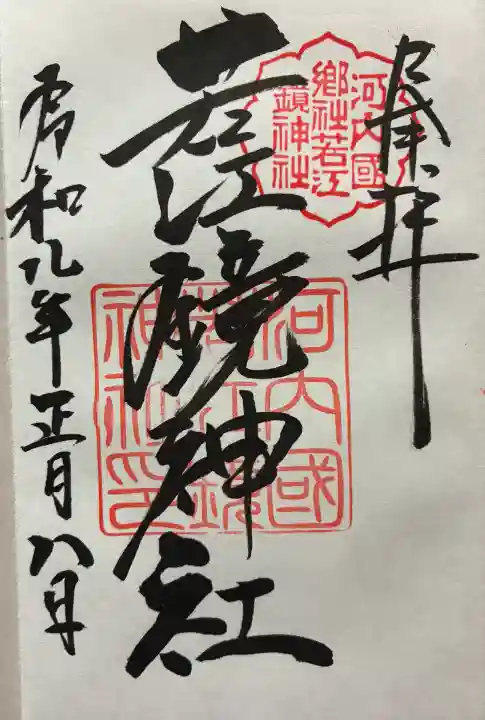 奉拝
河内國
郷社若江
鏡神社
若江鏡神社
河内國
若江鏡
神社印
令和八年正月八日